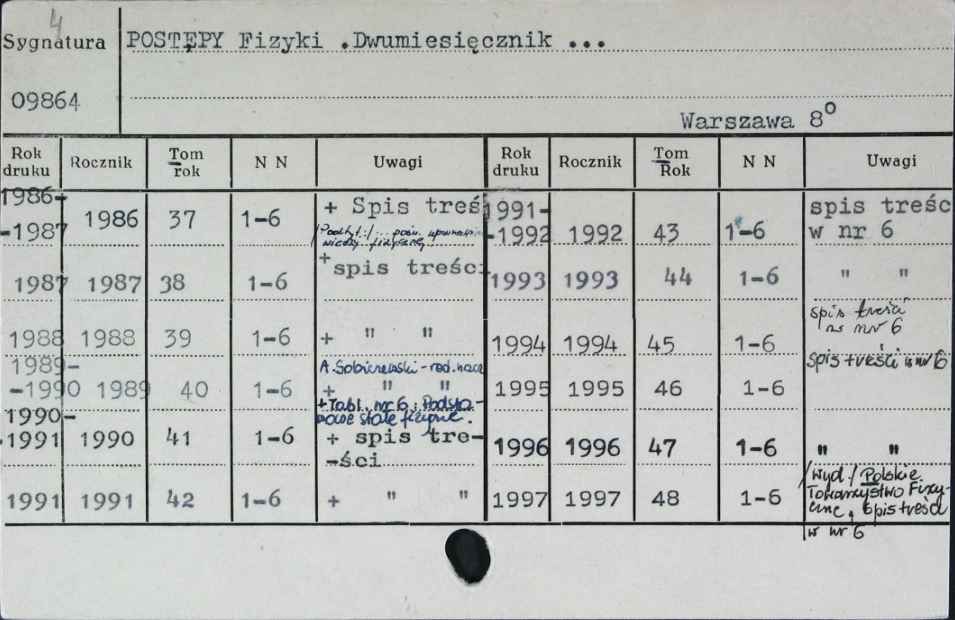 4
Sygnatura POSTĘPY Fizyki .Dwumiesięcznik ...
09864
Warszawa 8°
Rok druku Rocznik Tom rok N N Uwagi Rok druku Rocznik Tom Rok N N Uwagi
1986-
-1987 1986 37 1-6 + Spis treś
/Podtyt./...
wiedzy fizycznej
1991-
-1992 1992 43 1-6 spis treśc
w nr 6
1987 1987 38 1-6 + spis treści
1993 1993 44 1-6 " "
1988 1988 39 1-6 + " "
1994 1994 45 1-6 spis treści
w nr 6
1989-
-1990 1989 40 1-6 A. Sobiczewski - red. nacz
+ " "
+ Tabl. nr 6 : Podsta-
wowe stałe fizyczne.
1995 1995 46 1-6 spis treści w nr 6
1990-
-1991 1990 41 1-6 + spis tre-
-ści
1996 1996 47 1-6 " "
1991 1991 42 1-6 + " "
1997 1997 48 1-6 /wyd./ Polskie
Towarzystwo Fizy-
czne, Spis treści
w nr 6